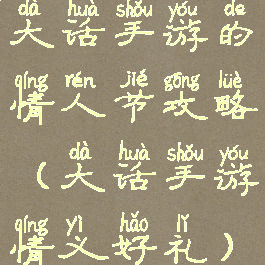 dà huà shǒu yóu de
大话手游的
qíng rén jié gōng lüè
情人节攻略
dà huà shǒu yóu
（大话手游
qíng yì hǎo lǐ
情义好礼）